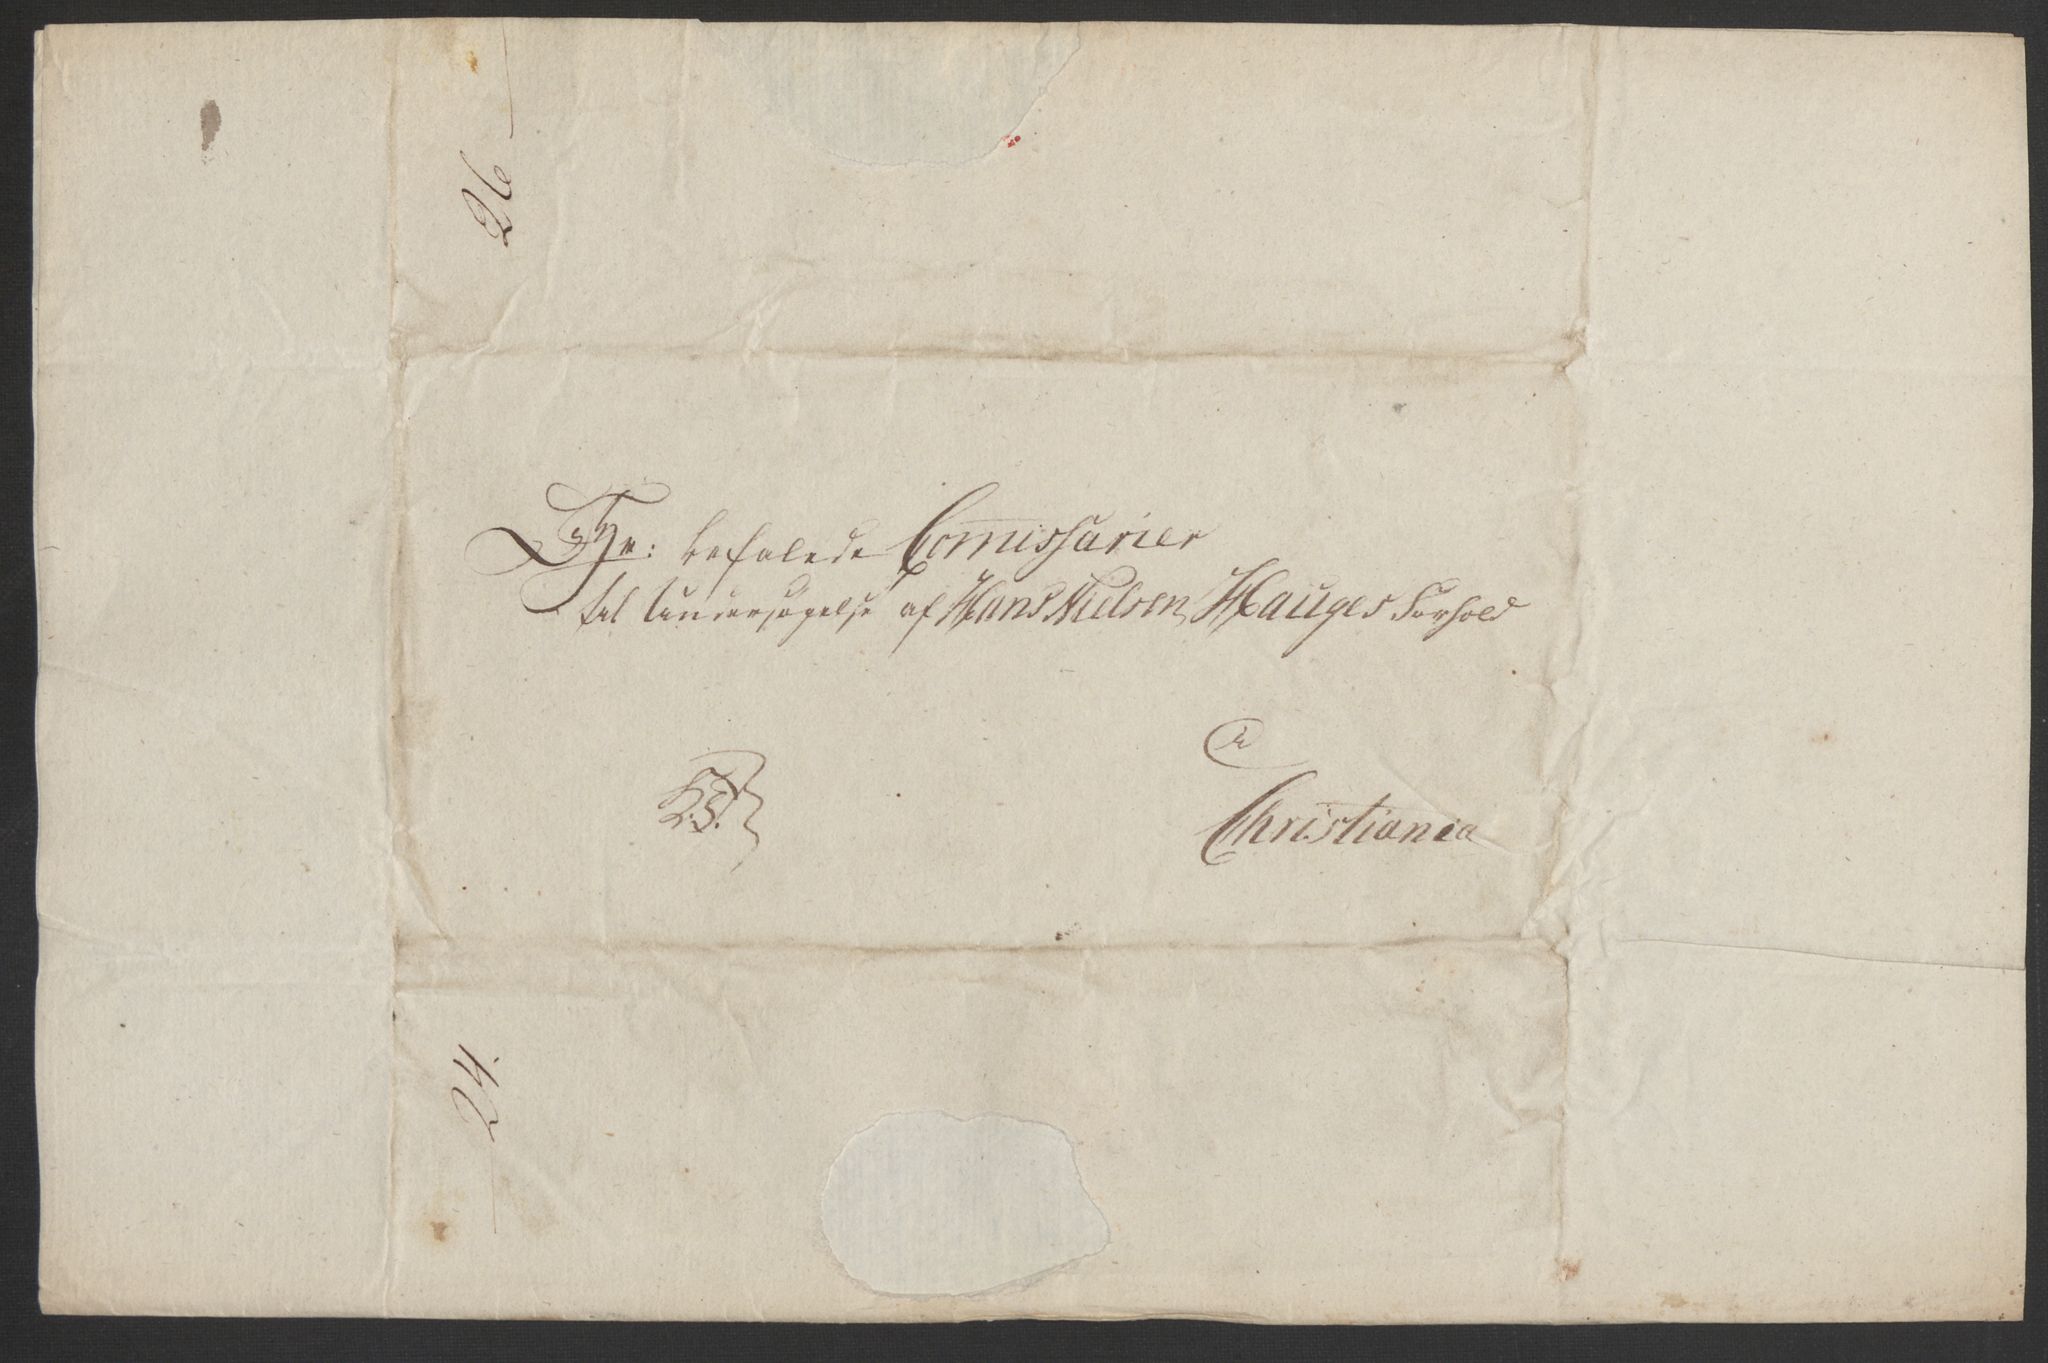 26
Hr: befalede Commissarier
til Undersøgelse af Hans Nielsen Hauges Forhold
a
Christiania
K.T.
24.